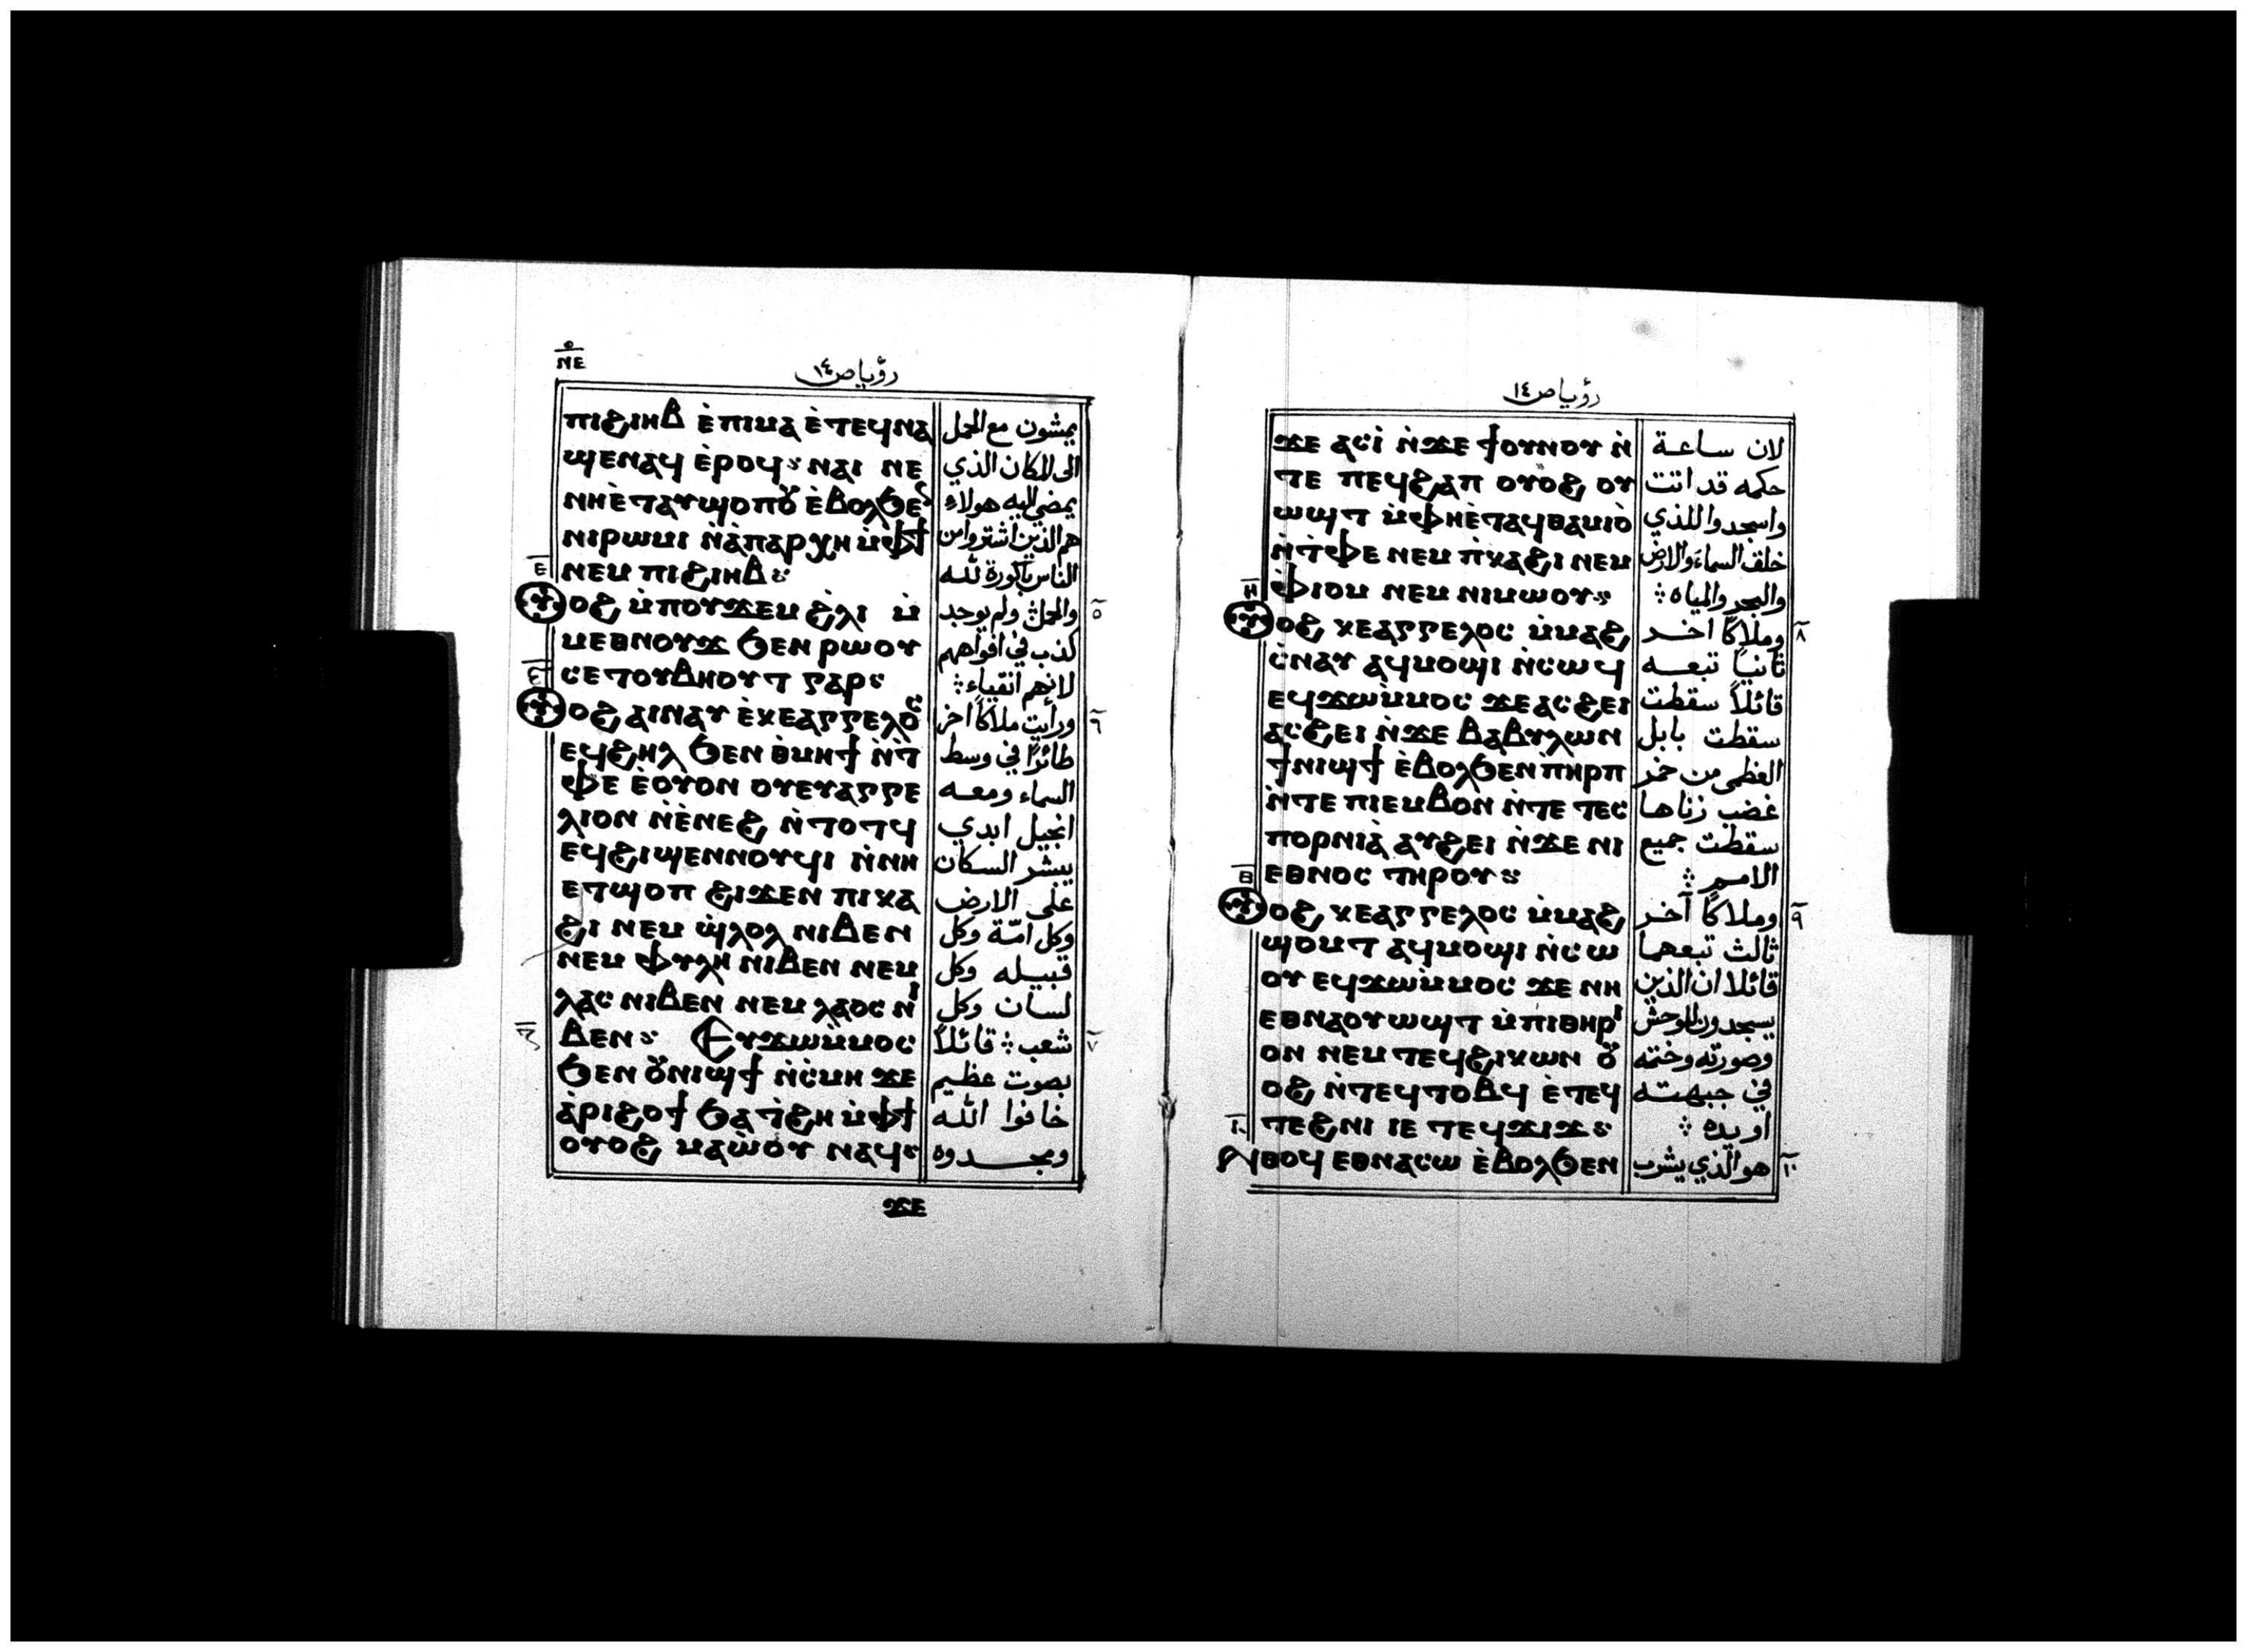 ⲛⲉ
رؤيا ص ١٤
ⲡⲓϩⲓⲏⲃ ⲉ̀ⲡⲓⲙⲁ ⲉ̀ⲧⲉϥⲛⲁ
ϣⲉⲛⲁϥ ⲉ̀ⲣⲟϥ ⲛⲁⲓ ⲛⲉ
ⲛⲏⲉ̀ⲧⲁⲩϣⲟⲡⲟⲩ ⲉ̀ⲃⲟⲗϧⲉⲛ
ⲛⲓⲣⲱⲙⲓ ⲛ̀ⲁ̀ⲡⲁⲣⲭⲏ ⲙ̀ⲫϯ
ⲛⲉⲙ ⲡⲓϩⲓⲏⲃ
ⲉ
ⲟⲩⲟϩ ⲙ̀ⲡⲟⲩϫⲉⲙ ϩ̀ⲗⲓ ⲙ̀
ⲙⲉⲑⲛⲟⲩϫ ϧⲉⲛ ⲣⲱⲟⲩ
ⲥⲉⲧⲟⲩⲃⲏⲟⲩⲧ ⲅⲁⲣ
ⲟⲩⲟϩ ⲁⲓⲛⲁⲩ ⲉ̀ⲕⲉⲁⲅⲅⲉⲗⲟⲥ
ⲉϥϩⲏⲗ ϧⲉⲛ ⲑ̀ⲙⲏϯ ⲛ̀ⲧ̀
ⲫⲉ ⲉ̀ⲟⲩⲟⲛ ⲟⲩⲉⲩⲁⲅⲅⲉ
ⲗⲓⲟⲛ ⲛ̀ⲉ̀ⲛⲉϩ ⲛ̀ⲧⲟⲧϥ
ⲉϥϩⲓϣⲉⲛⲛⲟⲩϥⲓ ⲛ̀ⲛⲏ
ⲉⲧϣⲟⲡ ϩⲓϫⲉⲛ ⲡⲓⲕⲁ
ϩⲓ ⲛⲉⲙ ϣ̀ⲗⲟⲗ ⲛⲓⲃⲉⲛ
ⲛⲉⲙ ⲫⲩⲗⲏ ⲛⲓⲃⲉⲛ ⲛⲉⲙ
ⲗⲁⲥ ⲛⲓⲃⲉⲛ ⲛⲉⲙ ⲗⲁⲟⲥ ⲛⲓ
ⲃⲉⲛ Ⲉⲩϫⲱⲙ̀ⲙⲟⲥ
ϧⲉⲛ ⲟⲩⲛⲓϣϯ ⲛ̀ⲥ̀ⲙⲏ ϫⲉ
ⲁ̀ⲣⲓϩⲟϯ ϧⲁⲧ̀ϩⲏ ⲙ̀ⲫϯ
ⲟⲩⲟϩ ⲙⲁⲱ̀ⲟⲩ ⲛⲁϥ
ϫⲉ
يمشون مع الحمل
الى المكان الذي
يمضي اليه هولاء
هم الذين اشتروا من
الناس باكورة لله
والحمل ٥ ولم يوجد
كذب في افواههم
لانهم انقياء
ورأيت ملاكًا اخر ٦
طائرًا في وسط
السماء ومعه
انجيل ابدي
يبشر السكان
على الارض
وكل امّة وكل
قبيله وكل
لسان وكل
شعب قائلاً ٧
بصوت عظيم
خافوا الله
ومجدوه
رؤيا ص ١٤
ϫⲉ ⲁⲥⲓ̀ ⲛ̀ϫⲉ ϯⲟⲩⲛⲟⲩ ⲛ̀
ⲧⲉ ⲡⲉϥϩⲁⲡ ⲟⲩⲟϩ ⲟⲩ
ⲱϣⲧ ⲙ̀ⲫⲏⲉ̀ⲧⲁϥⲑⲁⲙⲓⲟ̀
ⲛ̀ⲧ̀ⲫⲉ ⲛⲉⲙ ⲡ̀ⲕⲁϩⲓ ⲛⲉⲙ
ⲫ̀ⲓⲟⲙ ⲛⲉⲙ ⲛⲓⲙⲱⲟⲩ
ⲏ
ⲟⲩⲟϩ ⲕⲉⲁⲅⲅⲉⲗⲟⲥ ⲙ̀ⲙⲁϩ
ⲥ̀ⲛⲁⲩ ⲁϥⲙⲟϣⲓ ⲛ̀ⲥⲱϥ
ⲉϥϫⲱⲙ̀ⲙⲟⲥ ϫⲉ ⲁⲥϩⲉⲓ
ⲁⲥϩⲉⲓ ⲛ̀ϫⲉ ⲃⲁⲃⲩⲗⲱⲛ
ϯⲛⲓϣϯ ⲉ̀ⲃⲟⲗϧⲉⲛ ⲡⲏⲣⲡ
ⲛ̀ⲧⲉ ⲡⲓⲉⲙⲃⲟⲛ ⲛ̀ⲧⲉ ⲧⲉⲥ
ⲡⲟⲣⲛⲓⲁ̀ ⲁⲩϩⲉⲓ ⲛ̀ϫⲉ ⲛⲓ
ⲉⲑⲛⲟⲥ ⲧⲏⲣⲟⲩ
ⲑ
ⲟⲩⲟϩ ⲕⲉⲁⲅⲅⲉⲗⲟⲥ ⲙ̀ⲙⲁϩ
ϣⲟⲙⲧ ⲁϥⲙⲟϣⲓ ⲛ̀ⲥⲱ
ⲟⲩ ⲉϥϫⲱⲙ̀ⲙⲟⲥ ϫⲉ ⲛⲏ
ⲉⲑⲛⲁⲟⲩⲱϣⲧ ⲙ̀ⲡⲓⲑⲏⲣⲓ
ⲟⲛ ⲛⲉⲙ ⲧⲉϥϩⲓⲕⲱⲛ ⲟⲩ
ⲟϩ ⲛ̀ⲧⲉϥⲧⲟⲃϥ ⲉ̀ⲧⲉϥ
ⲧⲉϩⲛⲓ ⲓⲉ ⲧⲉϥϫⲓϫ
ⲓ
ⲛ̀ⲑⲟϥ ⲉⲑⲛⲁⲥⲱ ⲉ̀ⲃⲟⲗϧⲉⲛ
لان ساعة
حكمه قد اتت
واسجدوا للذي
خلق السماء والارض
والبحر والمياه
وملاكًا اخر ٨
ثانيًا تبعه
قائلاً سقطت
سقطت بابل
العظمى من خمر
غضب زناها
سقطت جميع
الامم
وملاكًا آخر ٩
ثالث تبعهما
قائلا ان الذين
يسجدون للوحش
وصورته وختمه
في جبهته
او يده
هو الذي يشرب ١٠